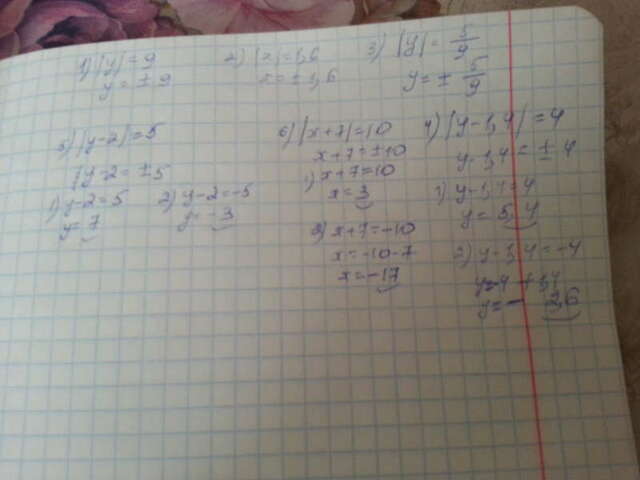 1) |y| = 9
y = ± 9
2) |x| = 1,6
x = ± 1,6
3) |y| = 5/9
y = ± 5/9
5) |y-2| = 5
y-2 = ±5
1) y-2 = 5
y = 7
2) y-2 = -5
y = -3
6) |x+7| = 10
x+7 = ±10
1) x+7 = 10
x = 3
2) x+7 = -10
x = -10-7
x = -17
4) |y-1,4| = 4
y-1,4 = ± 4
1) y-1,4 = 4
y = 5,4
2) y-1,4 = -4
y = -4 + 1,4
y = - 2,6